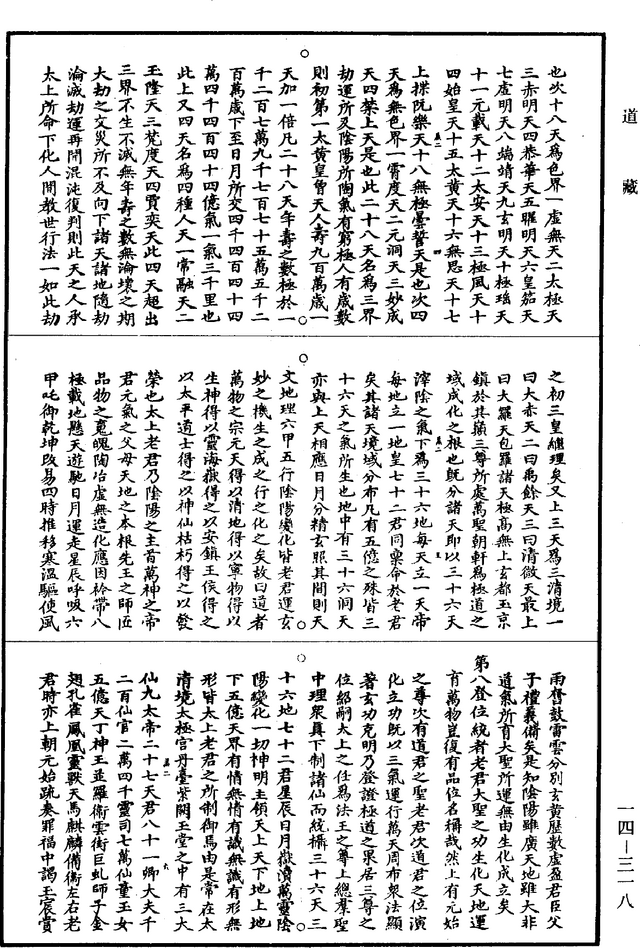 道藏
也次十八天為色界一虛無天二太極天
三赤明天四恭華天五曜明天六皇笳天
七虛明天八端靖天九玄明天十極瑤天
十一元載天十二太安天十三極風天十
四始皇天十五太黃天十六無思天十七
上揲阮樂天十八無極曇誓天是也次四
天為無色界一霄度天二元洞天三妙成
天四禁上天是也此二十八天名為三界
劫運所及陰陽所陶氣有窮極人有歲數
則初第一太黃皇曾天人壽九百萬歲一
天加一倍凡二十八天年壽之數極於一
千二百七萬九千七百七十五萬五千二
百萬歲下至日月所交四千四百四十四
萬四千四百四十四億氣一氣三千里也
此上又四天名為四種人天一常融天二
玉隆天三梵度天四賈奕天此四天超出
三界不生不滅無年壽之數無淪壞之期
大劫之交災所不及向下諸天諸地隨劫
淪滅劫運再開混沌復判則此天之人承
太上所命下化人間教世行法一如此劫
之初三皇繼理矣又上三天為三清境一
曰大赤天二曰禹餘天三曰清微天最上
曰大羅天包羅諸天極高無上玄都玉京
鎮於其巔三尊所處萬聖朝軒為極道之
域成化之根也既分諸天即以三十六天
滓陰之氣下為三十六地每天立一天帝
每地立一地皇七十二君同稟命於老君
矣其諸天境域分布凡有五億之殊皆三
十六天之氣所生也地中有三十六洞天
亦與上天相應日月分精玄照其間則天
文地理六甲五行陰陽變化皆老君運玄
妙之機生之成之行之化之矣故曰道者
萬物之宗元天得以清地得以寧物得以
生神得以靈海嶽得之以安鎮王侯得之
以太平道士得之以神仙枯朽得之以發
榮也太上老君乃陰陽之主首萬神之帝
君元氣之父母天地之本根先王之師匠
品物之䰟魄陶冶虛無造化應因袊帶八
極載地懸天遊馳日月運走星辰呼吸六
甲叱御乾坤改易四時推移寒溫驅使風
雨奮鼓雷雲分別玄黃歷數虛盈君臣父
子禮義備矣是知陰陽雖廣天地雖大非
道氣所育大聖所運無由生化成立矣
第八登位統者老君大聖之功生化天地運
育萬物豈復有品位名稱哉然上有元始
之尊次有道君之聖老君次道君之位演
化立功既以三氣運行萬天周布衆法顯
著玄功克明乃登證極道之果居三尊之
位紹嗣太上之任為法王之尊上總羣聖
中理衆真下制諸仙而統攝三十六天三
十六地七十二君星辰日月嶽瀆萬靈陰
陽變化一切神明主領天上天下地上地
下五億天界有情無情有識無識有形無
形皆太上老君之所制御焉由是常在太
清境太極宮丹臺紫闕玉堂之中有三大
仙九太帝二十七天君八十一卿大夫千
二百仙官二萬四千靈司七萬仙童玉女
五億天丁神王並羅衛雲衢巨虬師子金
翅孔雀鳳凰靈獸天馬麒麟備衛左右老
君時亦上朝元始疏奏罪福中謁玉宸賞
一四—三一八